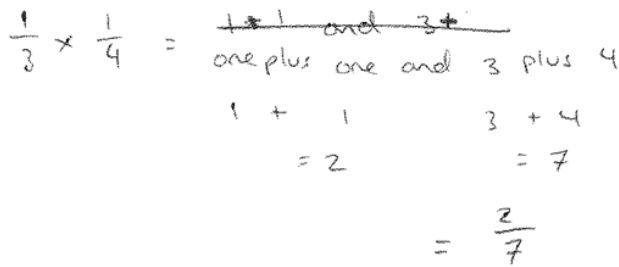 1/3 × 1/4 = 1+1 and 3+
one plus one and 3 plus 4
1 + 1 3 + 4
= 2 = 7
= 2/7